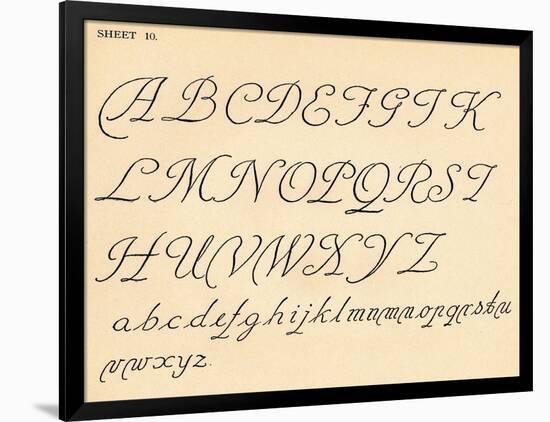 SHEET 10.
A B C D E F G I K
L M N O P Q R S T
H U V W X Y Z
a b c d e f g h i j k l m n m n o p q r s t u
v v w x y z.